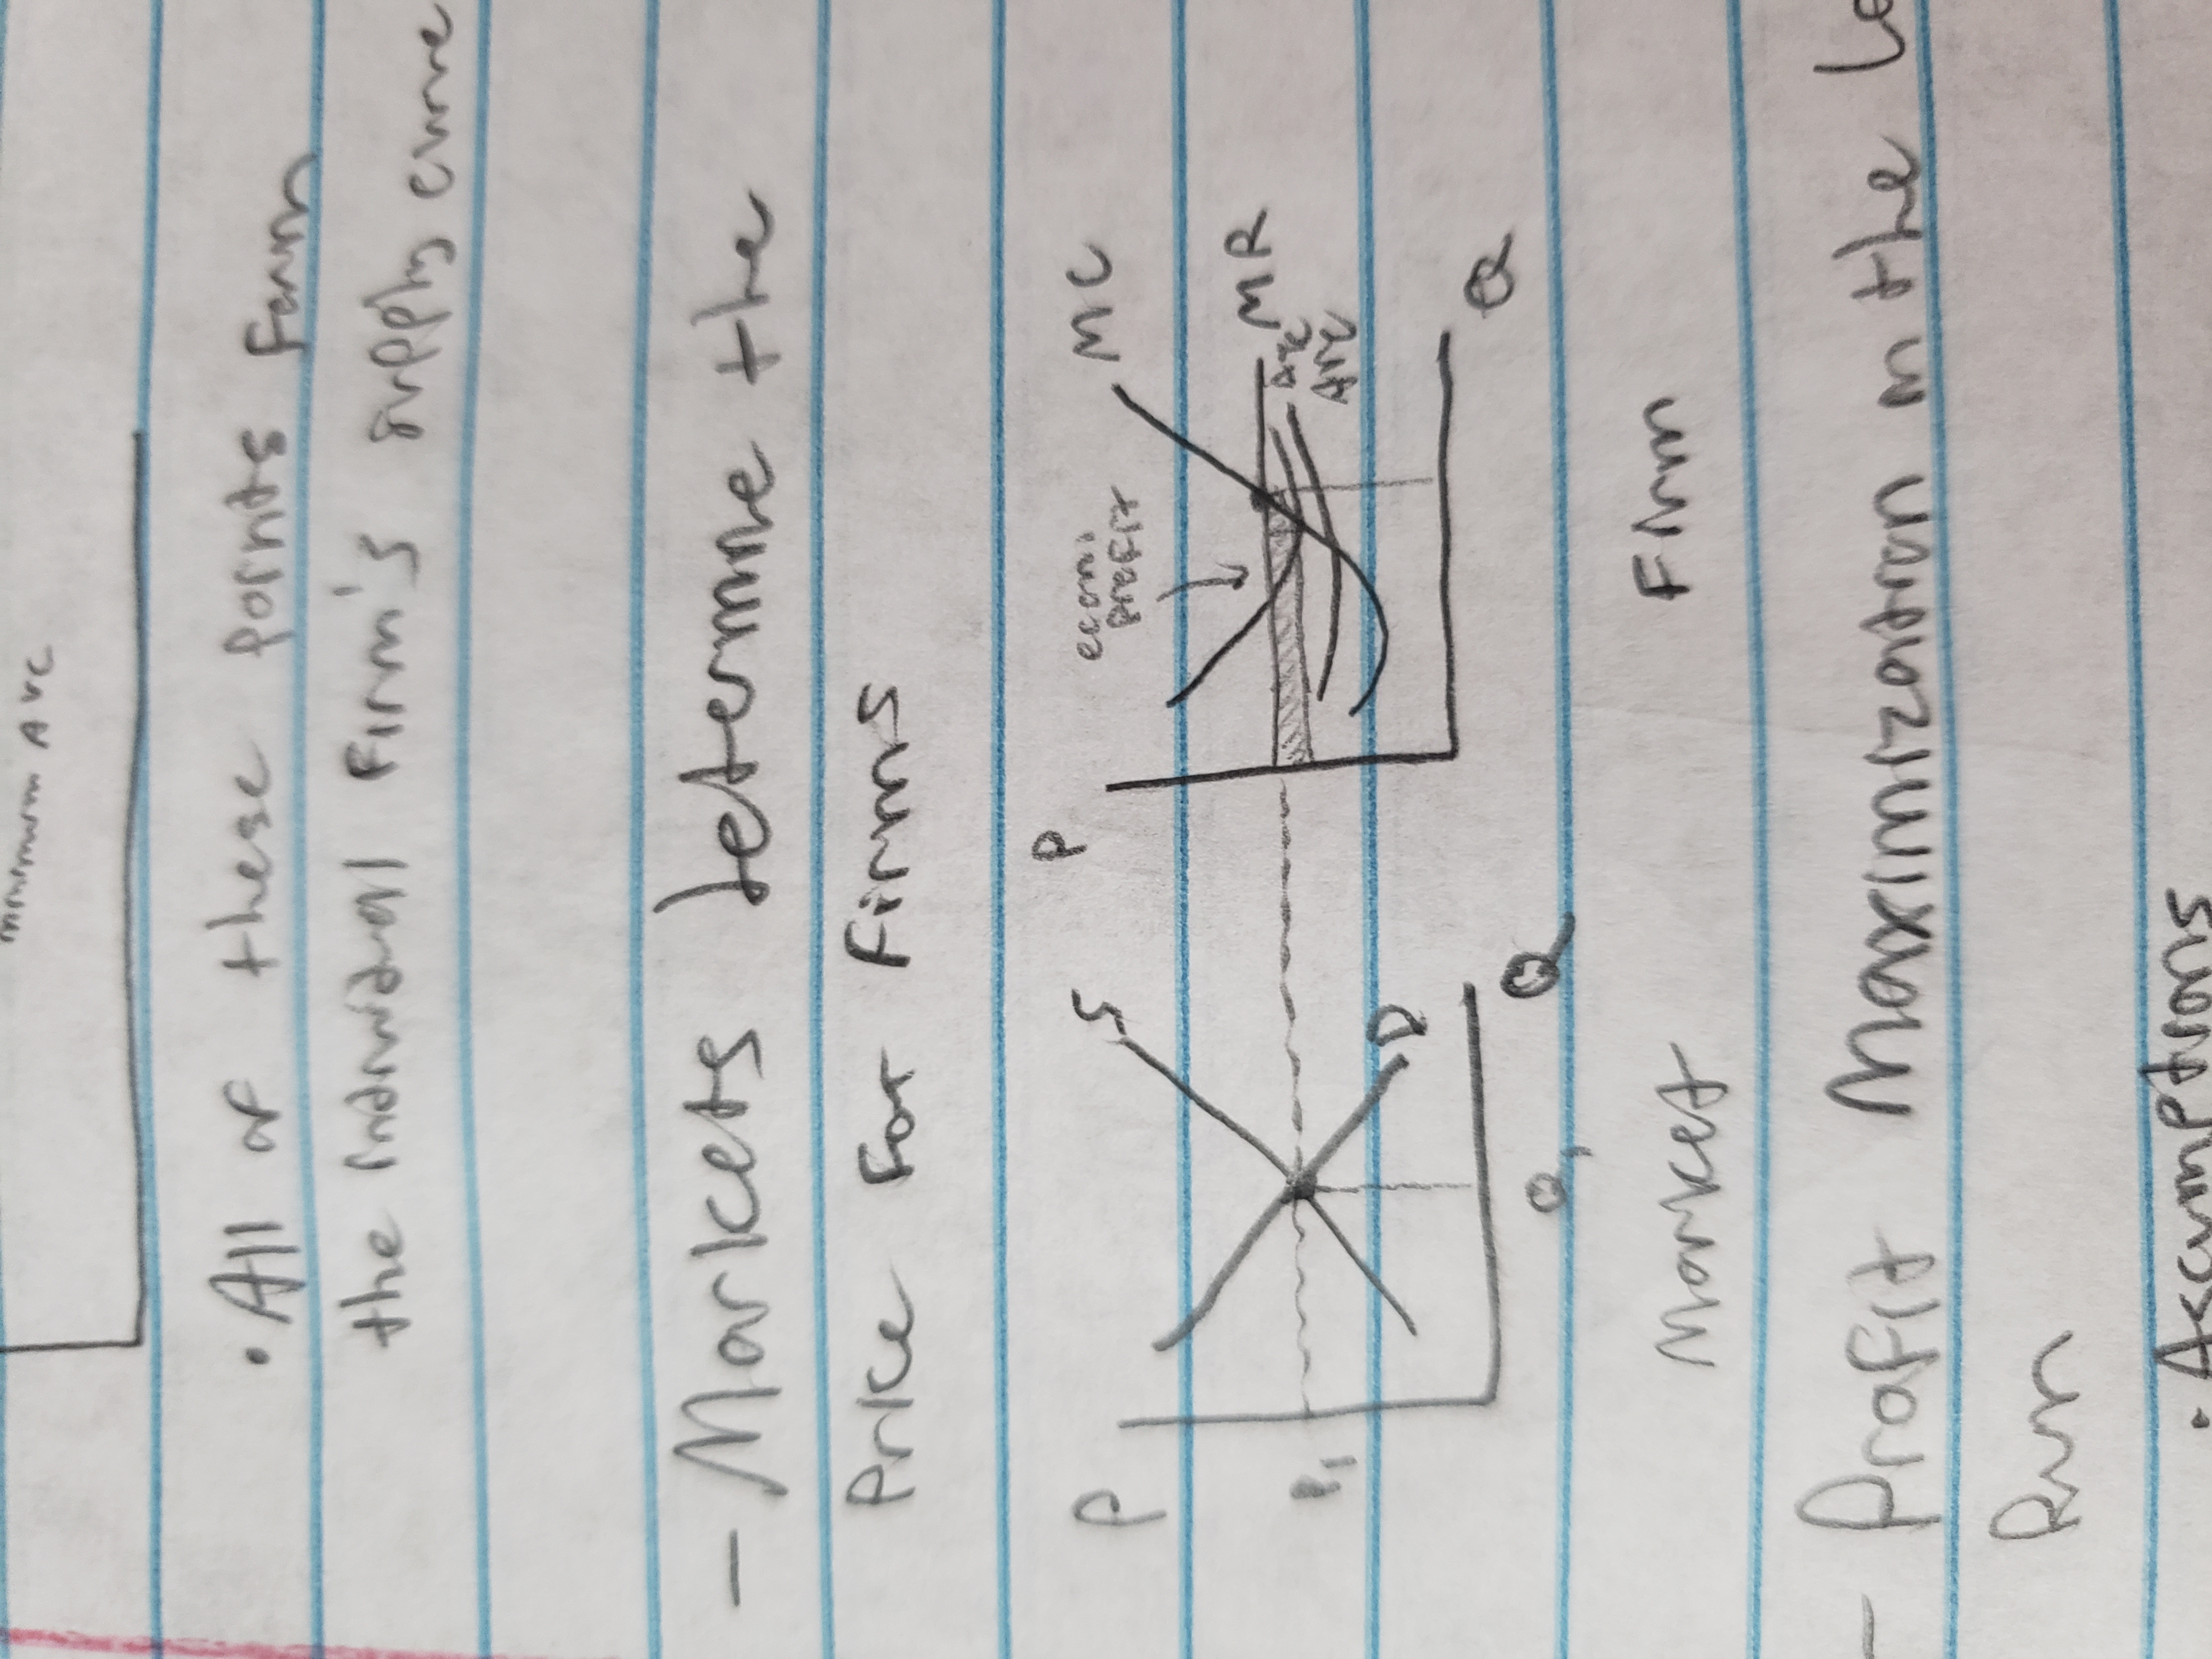 minimum AVC
• All of these points form
the individual firm's supply curve
- Markets determine the
price for firms
P
S
P
MC
econ
profit
MR
ATC
AVC
P1
D
Q1
Q
Q
Market
Firm
- Profit Maximization in the
Run
• Assumptions